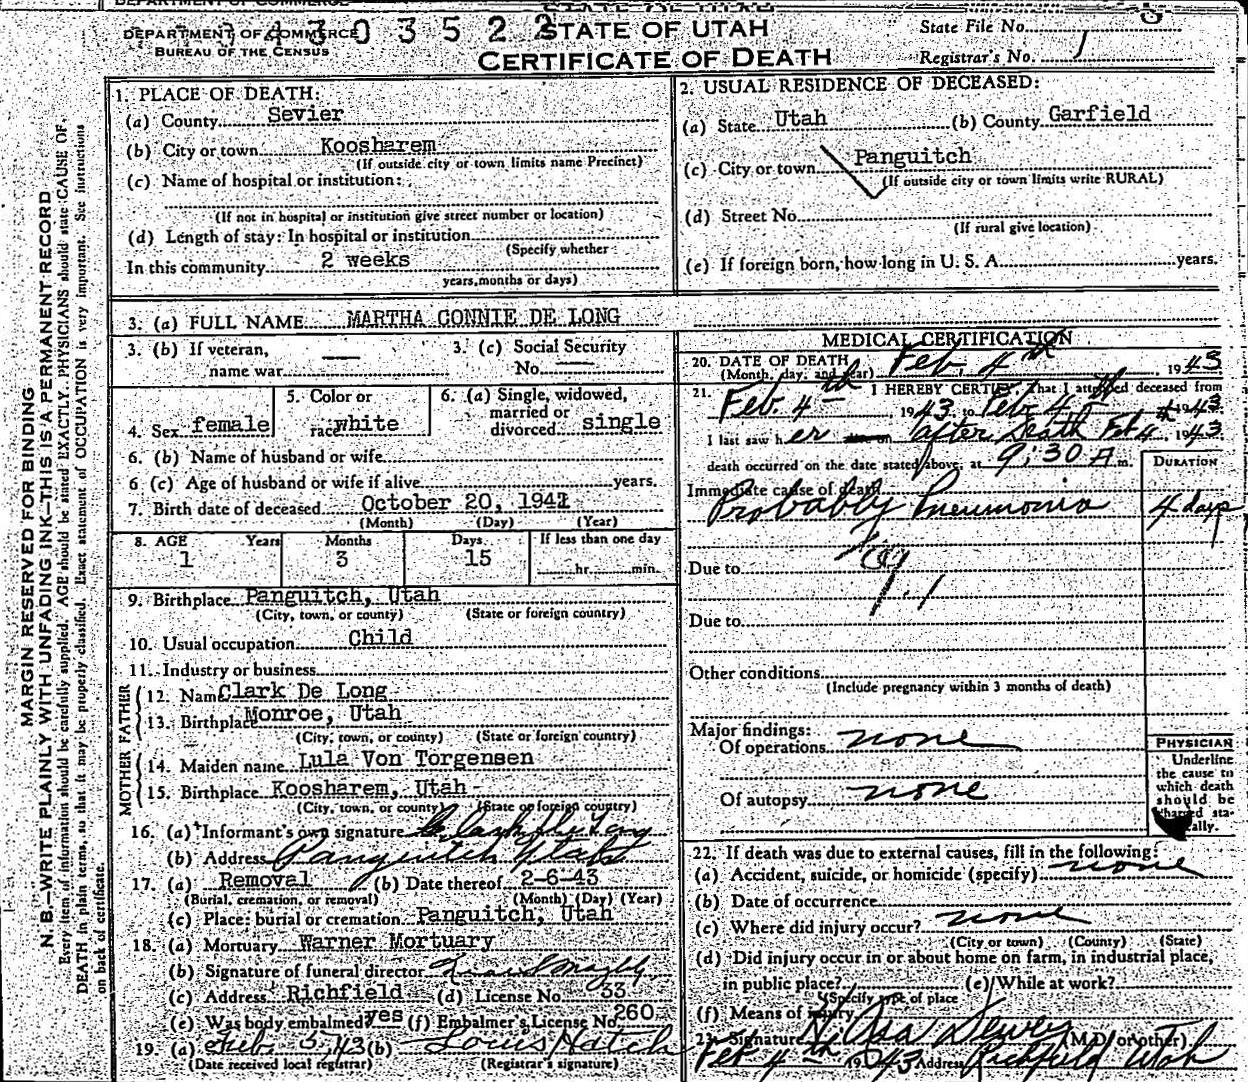 DEPARTMENT OF COMMERCE
BUREAU OF THE CENSUS
430 3522
STATE OF UTAH
CERTIFICATE OF DEATH
State File No.
Registrar's No. 1
MARGIN RESERVED FOR BINDING
N. B.—WRITE PLAINLY WITH UNFADING INK—THIS IS A PERMANENT RECORD
Every item of information should be carefully supplied. AGE should be stated EXACTLY. PHYSICIANS should state CAUSE OF
DEATH in plain terms, so that it may be properly classified. Exact statement of OCCUPATION is very important. See instructions
on back of certificate.
1. PLACE OF DEATH:
(a) County Sevier
(b) City or town Koosharem
(If outside city or town limits name Precinct)
(c) Name of hospital or institution:
(If not in hospital or institution give street number or location)
(d) Length of stay: In hospital or institution
(Specify whether
In this community 2 weeks
years, months or days)
2. USUAL RESIDENCE OF DECEASED:
(a) State Utah (b) County Garfield
(c) City or town Panguitch
(If outside city or town limits write RURAL)
(d) Street No.
(If rural give location)
(e) If foreign born, how long in U. S. A. years.
3. (a) FULL NAME MARTHA CONNIE DE LONG
3. (b) If veteran,
name war
3. (c) Social Security
No.
4. Sex female
5. Color or
race white
6. (a) Single, widowed,
married or
divorced single
6. (b) Name of husband or wife
6 (c) Age of husband or wife if alive years.
7. Birth date of deceased October 20, 1941
(Month) (Day) (Year)
8. AGE Years Months Days If less than one day
1 3 15 hr. min.
9. Birthplace Panguitch, Utah
(City, town, or county) (State or foreign country)
10. Usual occupation Child
11. Industry or business
FATHER
12. Name Clark De Long
13. Birthplace Monroe, Utah
(City, town, or county) (State or foreign country)
MOTHER
14. Maiden name Lula Von Torgensen
15. Birthplace Koosharem, Utah
(City, town, or county) (State or foreign country)
16. (a) Informant's own signature Clark De Long
(b) Address Panguitch Utah
17. (a) Removal (b) Date thereof 2-6-43
(Burial, cremation, or removal) (Month) (Day) (Year)
(c) Place: burial or cremation Panguitch, Utah
18. (a) Mortuary Warner Mortuary
(b) Signature of funeral director
(c) Address Richfield (d) License No. 33
(e) Was body embalmed? yes (f) Embalmer's License No. 260
19. (a) Feb. 5, 43 (b) Louis Hatch
(Date received local registrar) (Registrar's signature)
MEDICAL CERTIFICATION
20. DATE OF DEATH
(Month, day, and year) Feb. 4th, 1943
21. I HEREBY CERTIFY, That I attended deceased from
Feb. 4th, 1943, to Feb 4th 1943
I last saw her after death Feb 4th, 1943
death occurred on the date stated above, at 9:30 A m.
DURATION
Immediate cause of death
Probably Pneumonia 4 days
Due to
Due to
Other conditions
(Include pregnancy within 3 months of death)
Major findings:
Of operations none
Of autopsy none
PHYSICIAN
Underline
the cause to
which death
should be
charged sta-
tically.
22. If death was due to external causes, fill in the following:
(a) Accident, suicide, or homicide (specify) none
(b) Date of occurrence
(c) Where did injury occur? none
(City or town) (County) (State)
(d) Did injury occur in or about home on farm, in industrial place,
in public place? (e) While at work?
(Specify type of place
(f) Means of injury
23. Signature N. Asa Dewey (M.D. or other)
Feb 4th 1943 Address Richfield Utah